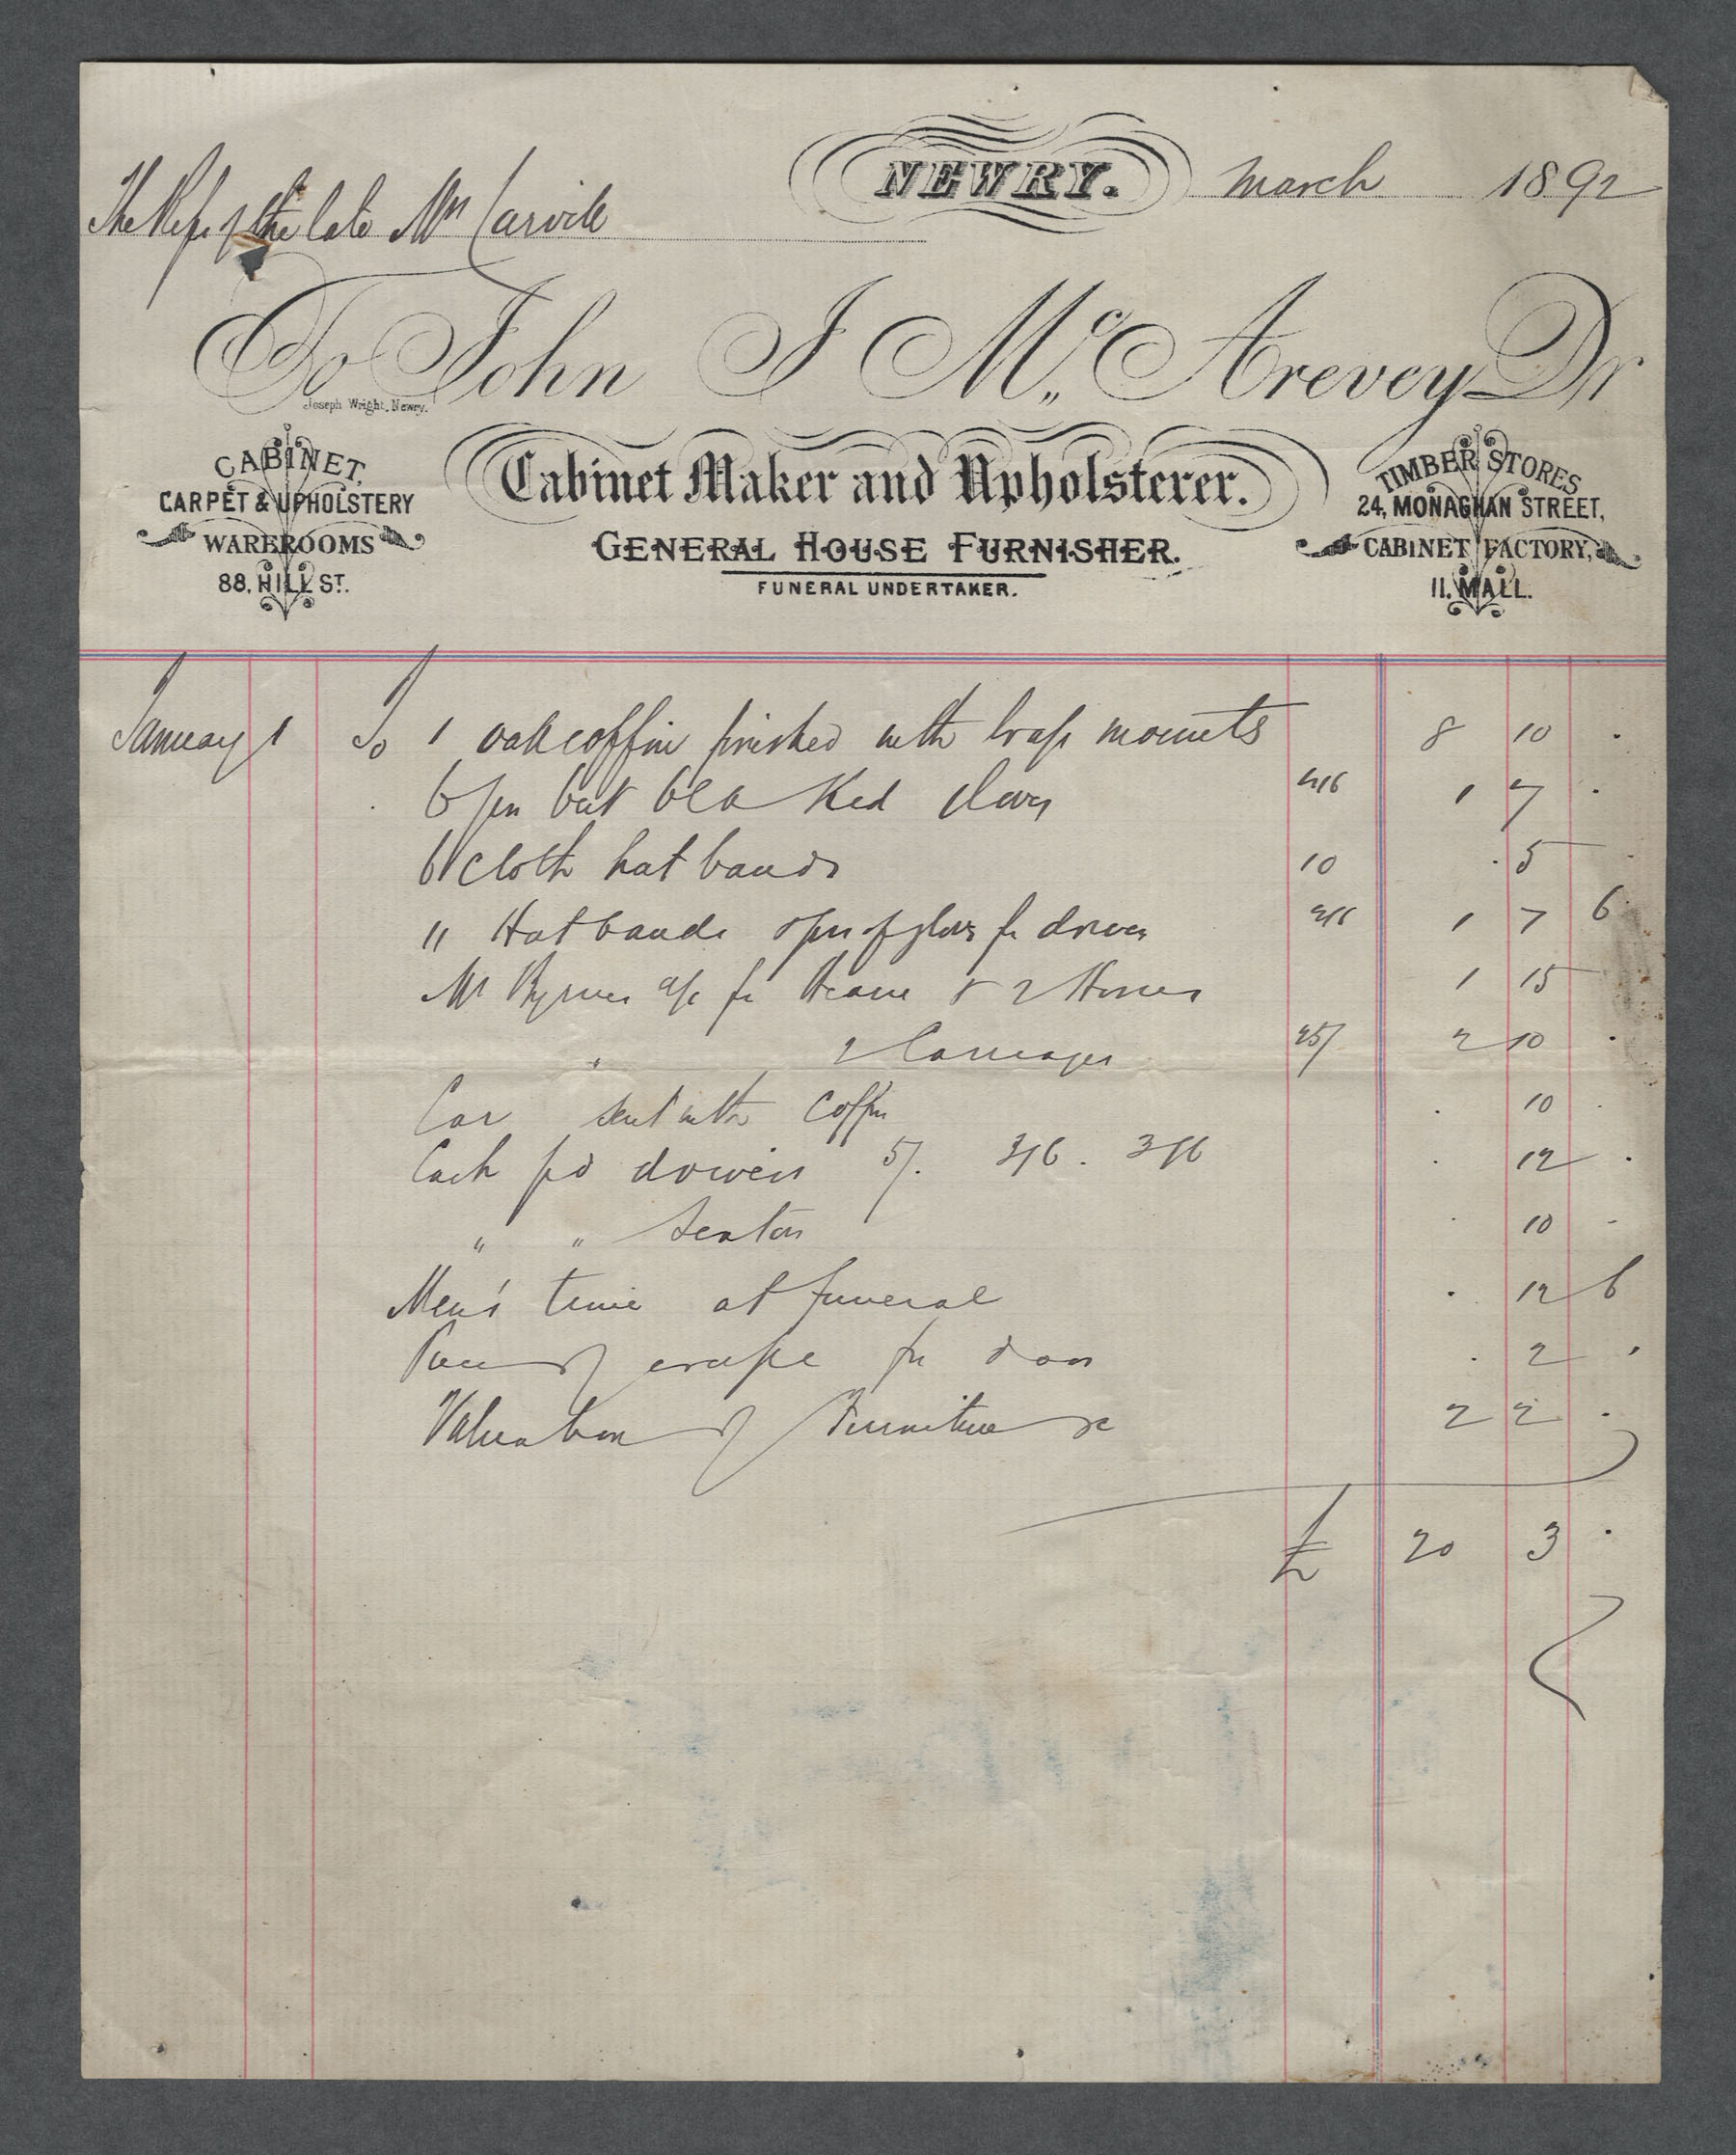 NEWRY. March 1892
The Reps of the late Mrs Carvile
To John J Mc Arevey Dr
Joseph Wright, Newry.
CABINET,
CARPET & UPHOLSTERY
WAREROOMS
88, HILL ST.
Cabinet Maker and Upholsterer.
GENERAL HOUSE FURNISHER.
FUNERAL UNDERTAKER.
TIMBER STORES
24, MONAGHAN STREET,
CABINET FACTORY,
11, MALL.
January 1 To 1 oak coffin finished with brass mounts 8 10 .
6 pr best blacked gloves 4/6 1 7 .
6 cloth hat bands 10 . 5 .
" Hat bands & prs of gloves for drivers 1 7 6
Mr Byrnes a/c for Hearse & 2 Horses 1 15
" 2 Carriages 25/ 2 10 .
Car sent with coffin . 10 .
Cash pd drivers 5/. 3/6. 3/6 . 12 .
" " Sexton . 10 -
Men's time at funeral . 12 6
Piece of crape for door . 2 .
Valuation of Furniture &c 2 2 .
£ 20 3 .